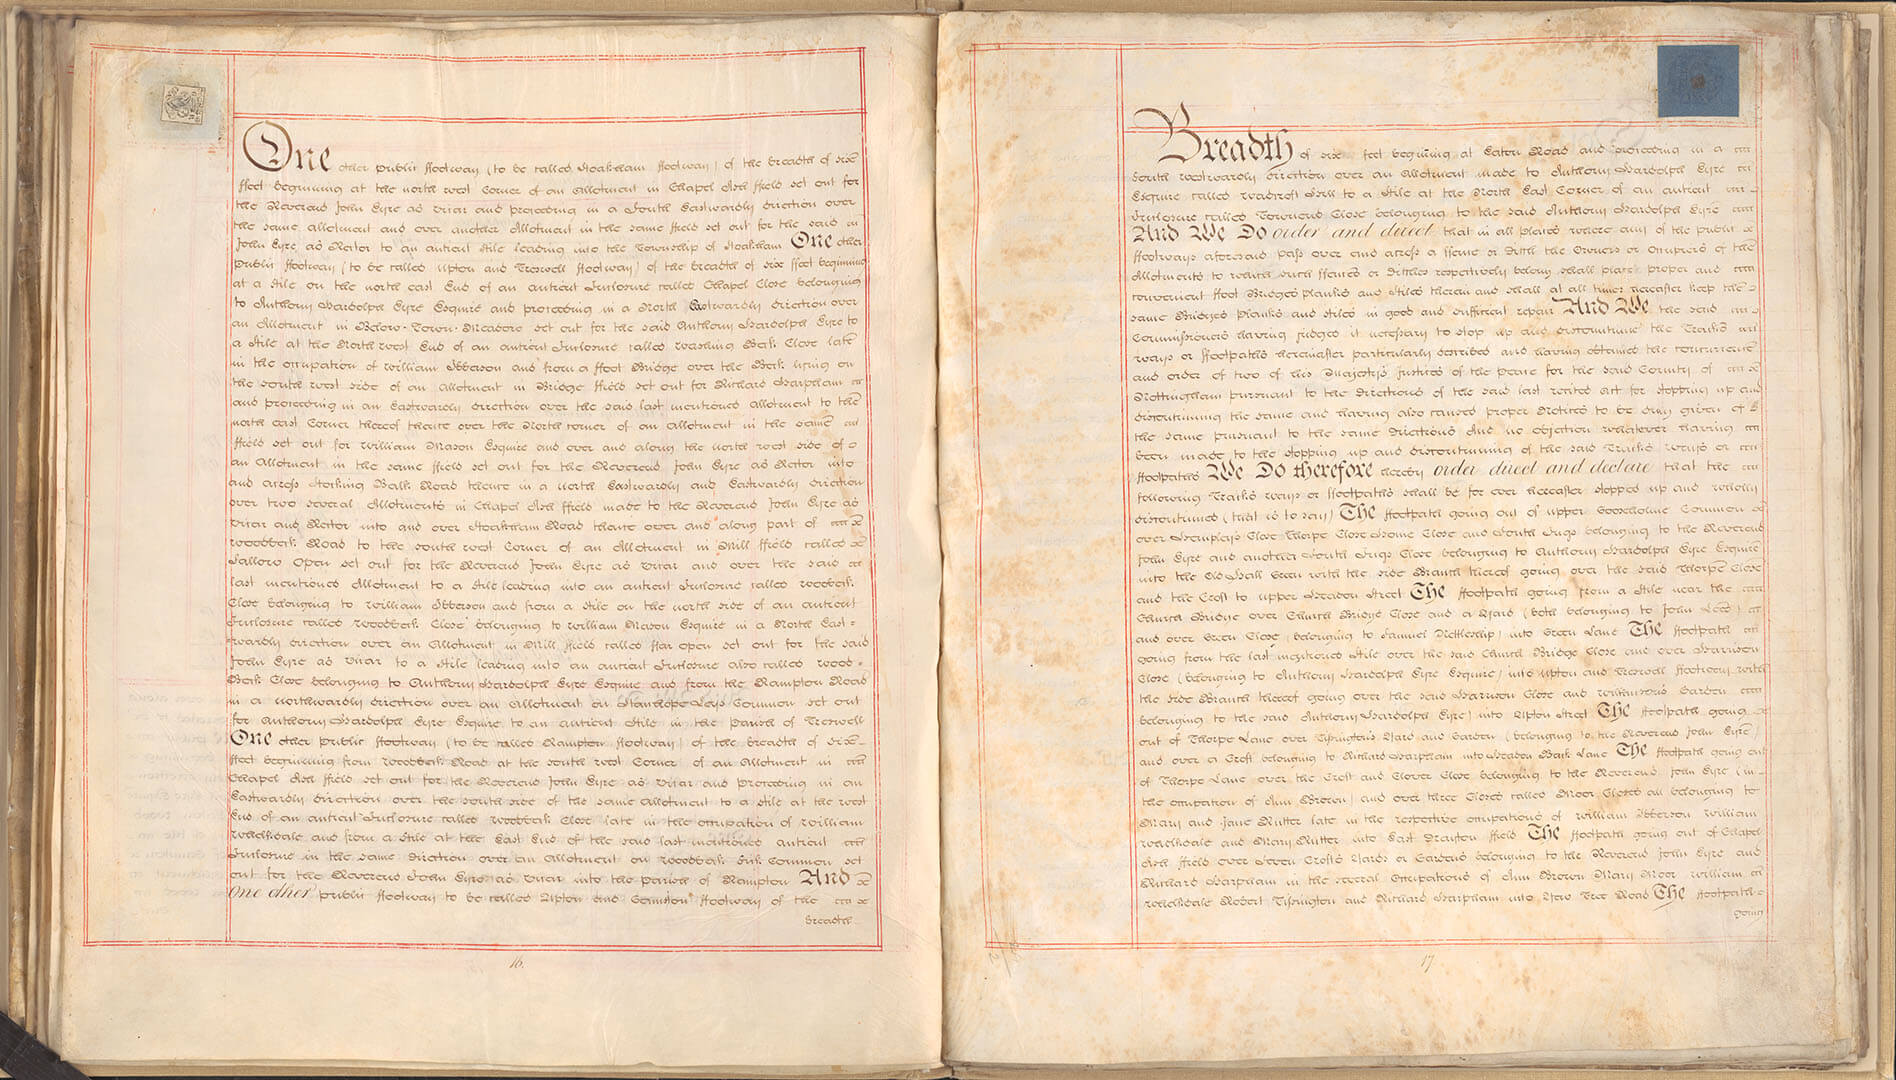 One other public footway (to be called Headham footway) of the breadth of six
feet beginning at the north west Corner of an Allotment in Chapel Ash ffield set out for
the Reverend John Eyre as Vicar and proceeding in a South Eastwardly direction over
the same allotment and over another Allotment in the same ffield set out for the said
John Eyre as Rector to an antient Stile leading into the Township of Headham One other
public ffootway (to be called Upton and Treswell ffootway) of the breadth of six ffeet beginning
at a Stile on the north east End of an antient Inclosure called Chapel Close belonging
to Anthony Hardolph Eyre Esquire and proceeding in a North Eastwardly direction over
an Allotment in Below-Town-Meadow set out for the said Anthony Hardolph Eyre to
a Stile at the North west End of an antient Inclosure called Washing Beck Close late
in the occupation of William Ibberson and from a ffoot Bridge over the Beck lying on
the South west side of an Allotment in Bridge ffield set out for Richard Harpham
and proceeding in an Eastwardly direction over the said last mentioned allotment to the
north east Corner thereof thence over the North corner of an allotment in the same
ffield set out for William Mason Esquire and over and along the north west side of
an Allotment in the same ffield set out for the Reverend John Eyre as Rector into
and across Balk Road thence in a North Eastwardly and Eastwardly direction
over two several Allotments in Chapel Ash ffield made to the Reverend John Eyre as
Vicar and Rector into and over Road thence over and along part of
Woodbeck Road to the south west Corner of an Allotment in Mill ffield called
Open set out for the Reverend John Eyre as Vicar and over the said
last mentioned Allotment to a Stile leading into an antient Inclosure called Woodbeck
Close belonging to William Ibberson and from a Stile on the north side of an antient
Inclosure called Woodbeck Close belonging to William Mason Esquire in a North East-
wardly direction over an Allotment in Mill ffield called open set out for the said
John Eyre as Vicar to a Stile leading into an antient Inclosure also called Wood-
Beck Close belonging to Anthony Hardolph Eyre Esquire and from the Rampton Road
in a Northwardly direction over an Allotment on Leys Common set out
for Anthony Hardolph Eyre Esquire to an antient Stile in the parish of Treswell
One other public ffootway (to be called Rampton ffootway) of the breadth of six
ffeet beginning from Woodbeck Road at the south west Corner of an Allotment in
Chapel Ash ffield set out for the Reverend John Eyre as Vicar and proceeding in an
Eastwardly direction over the south side of the same Allotment to a Stile at the west
End of an antient Inclosure called Woodbeck Close late in the occupation of William
and from a Stile at the East End of the said last mentioned antient
Inclosure in the same direction over an allotment on Woodbeck Common set
out for the Reverend John Eyre as Vicar into the parish of Rampton And
One other public ffootway to be called Upton and Gamston ffootway of the
breadth
16.
Breadth of six feet beginning at Eaton Road and proceeding in a
South westwardly direction over an Allotment made to Anthony Hardolph Eyre
Esquire called Hill to a Stile at the North East Corner of an antient
Inclosure called Townend Close belonging to the said Anthony Hardolph Eyre
And We Do order and direct that in all places where any of the public
ffootways aforesaid pass over and across a ffence or ditch the Owners or Occupiers of the
Allotments to which such ffences or ditches respectively belong shall place proper and
convenient ffoot Bridges planks and Stiles therein and shall at all times hereafter keep the
same Bridges planks and stiles in good and sufficient repair And We the said
Commissioners having judged it necessary to stop up and discontinue the Tracks
ways or ffootpaths hereinafter particularly described and having obtained the concurrence
and order of two of his Majesty's Justices of the peace for the said County of
Nottingham pursuant to the directions of the said last recited Act for stopping up and
discontinuing the same and having also caused proper Notices to be duly given of
the same pursuant to the same directions And no objection whatever having
been made to the stopping up and discontinuing of the said Tracks ways or
ffootpaths We Do therefore hereby order direct and declare that the
following Tracks ways or ffootpaths shall be for ever hereafter stopped up and wholly
discontinued (that is to say) The ffootpath going out of upper Common
over Close Thorpe Close Home Close and South Ings belonging to the Reverend
John Eyre and another South Ings Close belonging to Anthony Hardolph Eyre Esquire
into the Old Hall Green with the side Branch thereof going over the said Thorpe Close
and the Croft to upper Headon Street The ffootpath going from a Stile near the
Church Bridge over Church Bridge Close and a Yard (both belonging to John )
and over Green Close (belonging to Samuel Nettleship) into Green Lane The ffootpath
going from the last mentioned Stile over the said Church Bridge Close and over Harrison
Close (belonging to Anthony Hardolph Eyre Esquire) into Upton and Treswell ffootway with
the side Branch thereof going over the said Harrison Close and Wilkinson's Garden
belonging to the said Anthony Hardolph Eyre) into Upton Street The ffootpath going
out of Thorpe Lane over Tissington's Yard and Garden (belonging to the Reverend John Eyre)
and over a Croft belonging to Richard Harpham into Headon Bank Lane The ffootpath going out
of Thorpe Lane over the Croft and Clover Close belonging to the Reverend John Eyre (in
the occupation of Ann Brown) and over three Closes called Moor Closes all belonging to
Mary and Jane Rutter late in the respective occupations of William Ibberson William
and Mary Rutter into East Drayton ffield The ffootpath going out of Chapel
Ash ffield over Seven Crofts Yards or Gardens belonging to the Reverend John Eyre and
Richard Harpham in the several Occupations of Ann Brown Mary Moor William
Robert Tissington and Richard Harpham into Yew Tree Road The ffootpath
going
17